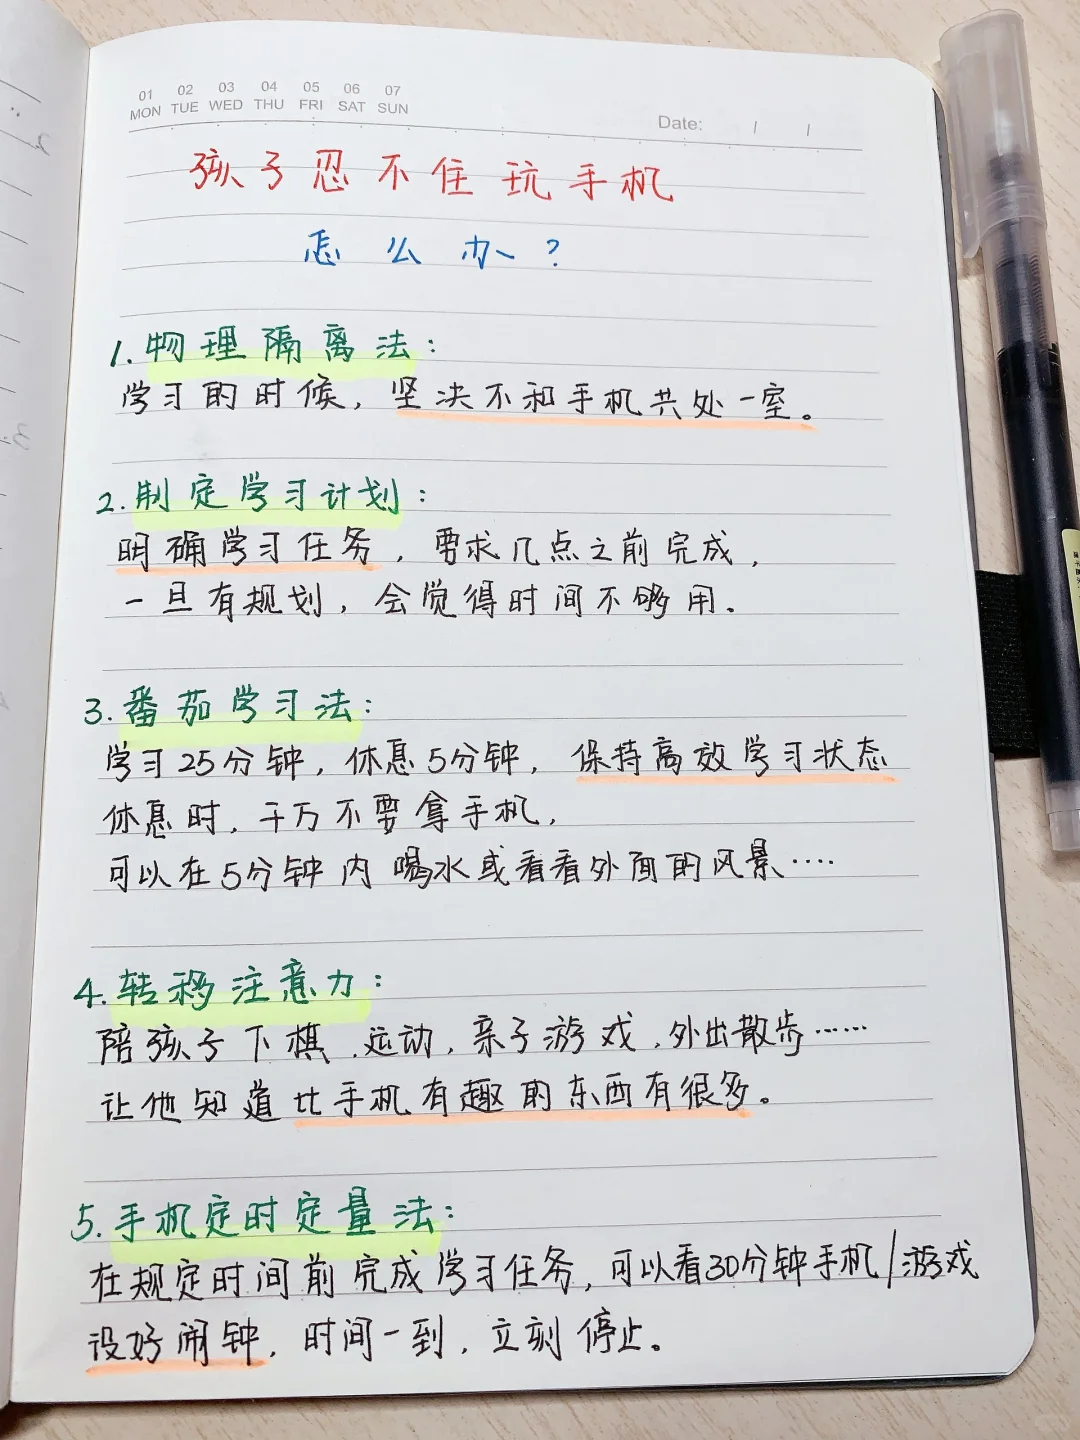 01 02 03 04 05 06 07
MON TUE WED THU FRI SAT SUN
Date: / /
孩子忍不住玩手机
怎么办?
1.物理隔离法:
学习的时候,坚决不和手机共处一室。
2.制定学习计划:
明确学习任务,要求几点之前完成,
一旦有规划,会觉得时间不够用。
3.番茄学习法:
学习25分钟,休息5分钟,保持高效学习状态
休息时,千万不要拿手机,
可以在5分钟内喝水或看看外面的风景····
4.转移注意力:
陪孩子下棋,运动,亲子游戏,外出散步······
让他知道比手机有趣的东西有很多。
5.手机定时定量法:
在规定时间前完成学习任务,可以看30分钟手机/游戏
设好闹钟,时间一到,立刻停止。